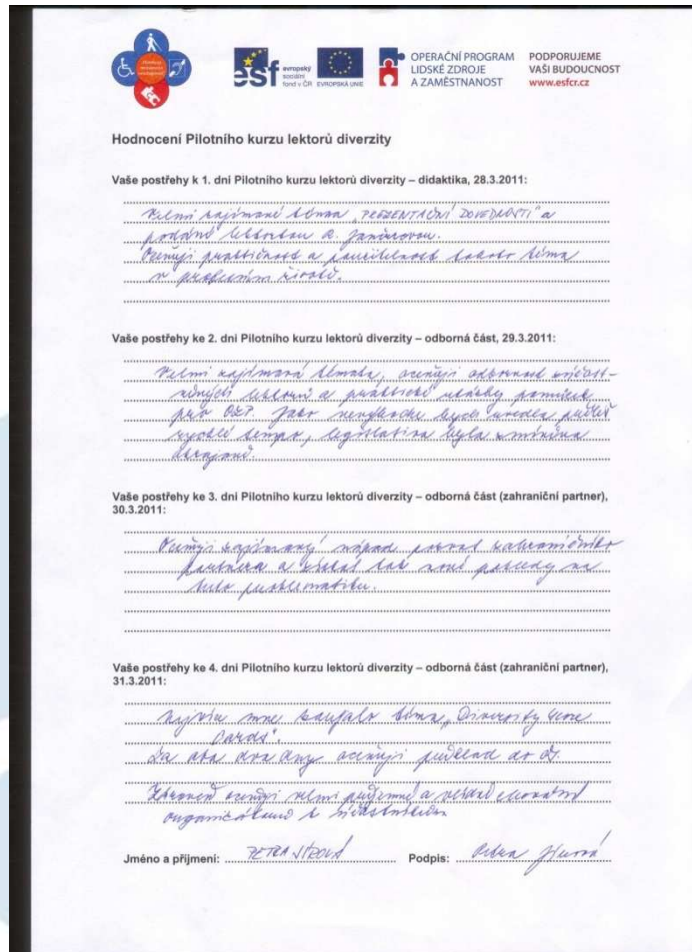 esf evropský sociální fond v ČR EVROPSKÁ UNIE
OPERAČNÍ PROGRAM LIDSKÉ ZDROJE A ZAMĚSTNANOST
PODPORUJEME VAŠI BUDOUCNOST www.esfcr.cz
Hodnocení Pilotního kurzu lektorů diverzity
Vaše postřehy k 1. dni Pilotního kurzu lektorů diverzity – didaktika, 28.3.2011:
Velmi zajímavé téma „PREZENTAČNÍ DOVEDNOSTI" a
podání lektorkou
Oceňuji praktičnost a použitelnost tohoto téma
v profesním životě.
Vaše postřehy ke 2. dni Pilotního kurzu lektorů diverzity – odborná část, 29.3.2011:
Velmi zajímavá témata, oceňuji odbornost zúčast-
něných lektorů a praktické ukázky pomůcek
pro OZP. Jako nevýhodu bych uvedla příliš
rychlé tempo, legislativa byla zmíněna
okrajově.
Vaše postřehy ke 3. dni Pilotního kurzu lektorů diverzity – odborná část (zahraniční partner),
30.3.2011:
Oceňuji zajímavý nápad pozvat zahraničního
partnera a získat tak nové pohledy na
tuto problematiku.
Vaše postřehy ke 4. dni Pilotního kurzu lektorů diverzity – odborná část (zahraniční partner),
31.3.2011:
Nejvíce mne zaujalo téma „Diversity
Cards".
Za oba dva dny oceňuji překlad do
Zároveň oceňuji velmi příjemné a
organizátorů k účastníkům
Jméno a přijmení: PETRA Podpis: Petra